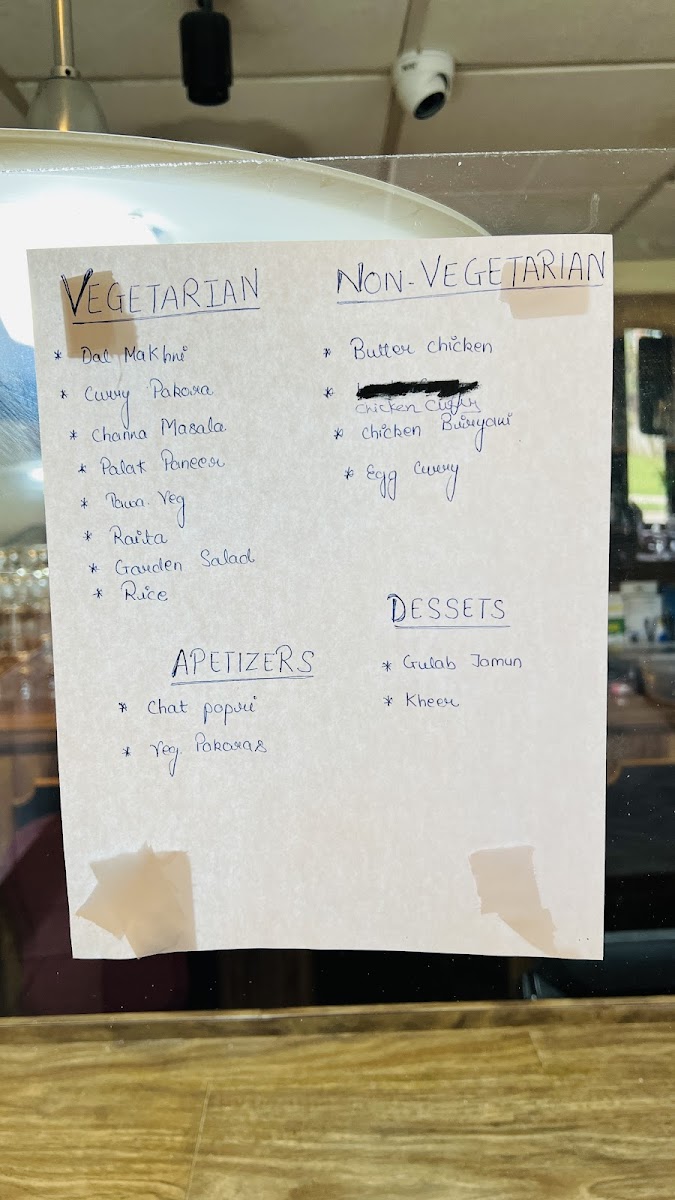 VEGETARIAN
* Dal Makhni
* Curry Pakora
* Channa Masala
* Palak Paneer
* Tawa. Veg
* Raita
* Garden Salad
* Rice
NON-VEGETARIAN
* Butter chicken
* chicken Curry
* chicken Buryani
* Egg curry
APETIZERS
* Chat papri
* Veg. Pakoras
DESSETS
* Gulab Jamun
* Kheer